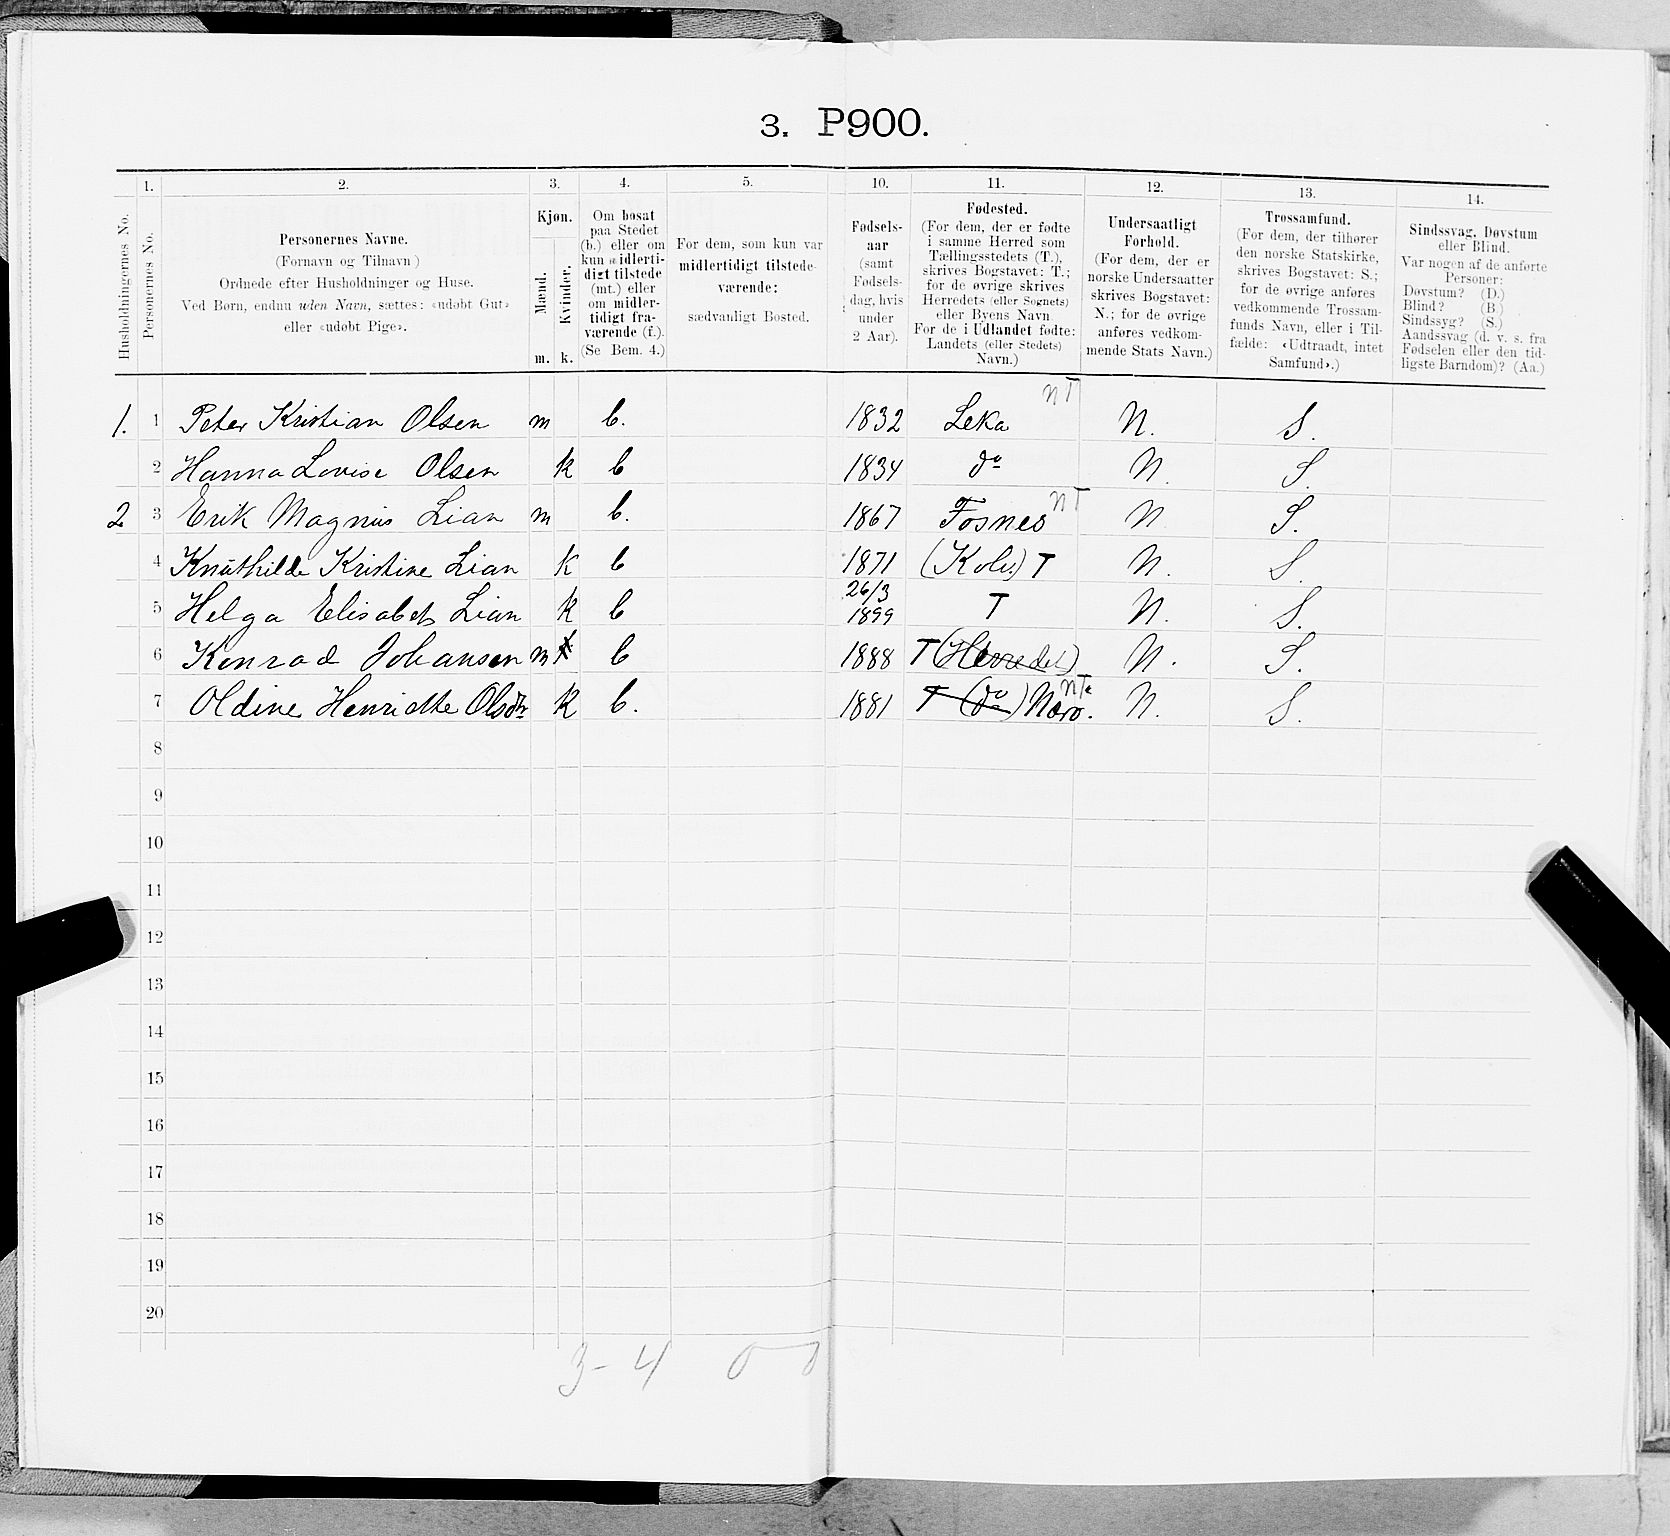 3. P900.
Husholdningernes No.
1.
Personernes No.
2.
Personernes Navne.
(Fornavn og Tilnavn)
Ordnede efter Husholdninger og Huse.
Ved Børn, endnu uden Navn, sættes: «udøbt Gut»
eller «udøbt Pige».
3.
Kjøn.
Mænd.
Kvinder.
m. k.
4.
Om bosat
paa Stedet
(b.) eller om
kun midlerti-
digt tilstede
(mt.) eller
om midler-
tidigt fra-
værende (f.).
(Se Bem. 4.)
5.
For dem, som kun var
midlertidigt tilstede-
værende:
sædvanligt Bosted.
10.
Fødsels-
aar
(samt
Fødsels-
dag, hvis
under
2 Aar).
11.
Fødested.
(For dem, der er fødte
i samme Herred som
Tællingsstedets (T.),
skrives Bogstavet: T.;
for de øvrige skrives
Herredets (eller Sognets)
eller Byens Navn.
For de i Udlandet fødte:
Landets (eller Stedets)
Navn.)
12.
Undersaatligt
Forhold.
(For dem, der er
norske Undersaatter
skrives Bogstavet:
N.; for de øvrige
anføres vedkom-
mende Stats Navn.)
13.
Trossamfund.
(For dem, der tilhører
den norske Statskirke,
skrives Bogstavet: S.;
for de øvrige anføres
vedkommende Trossam-
funds Navn, eller i Til-
fælde: «Udtraadt, intet
Samfund».)
14.
Sindssvag, Døvstum
eller Blind.
Var nogen af de anførte
Personer:
Døvstum? (D.)
Blind? (B.)
Sindssyg? (S.)
Aandssvag (d. v. s. fra
Fødselen eller den tid-
ligste Barndom)? (Aa.)
1. 1 Peter Kristian Olsen m b. 1832 Leka nT N. S.
2 Hanna Lovise Olsen k b 1834 do N. S.
2 3 Erik Magnus Lian m b. 1867 Fosnes nT N S.
4 Knuthilde Kristine Lian k b 1871 (Kolv.) T N. S.
5 Helga Elisabet Lian k b 26/3 1899 T N. S.
6 Konrad Johansen m k b 1888 T (Herredet) N. S.
7 Oldine Henriette Olsdtr k b. 1881 T (do) Nærø. nT N. S.
8
9
10
11
12
13
14
15
16
17
18
19
20
3-4 0 0